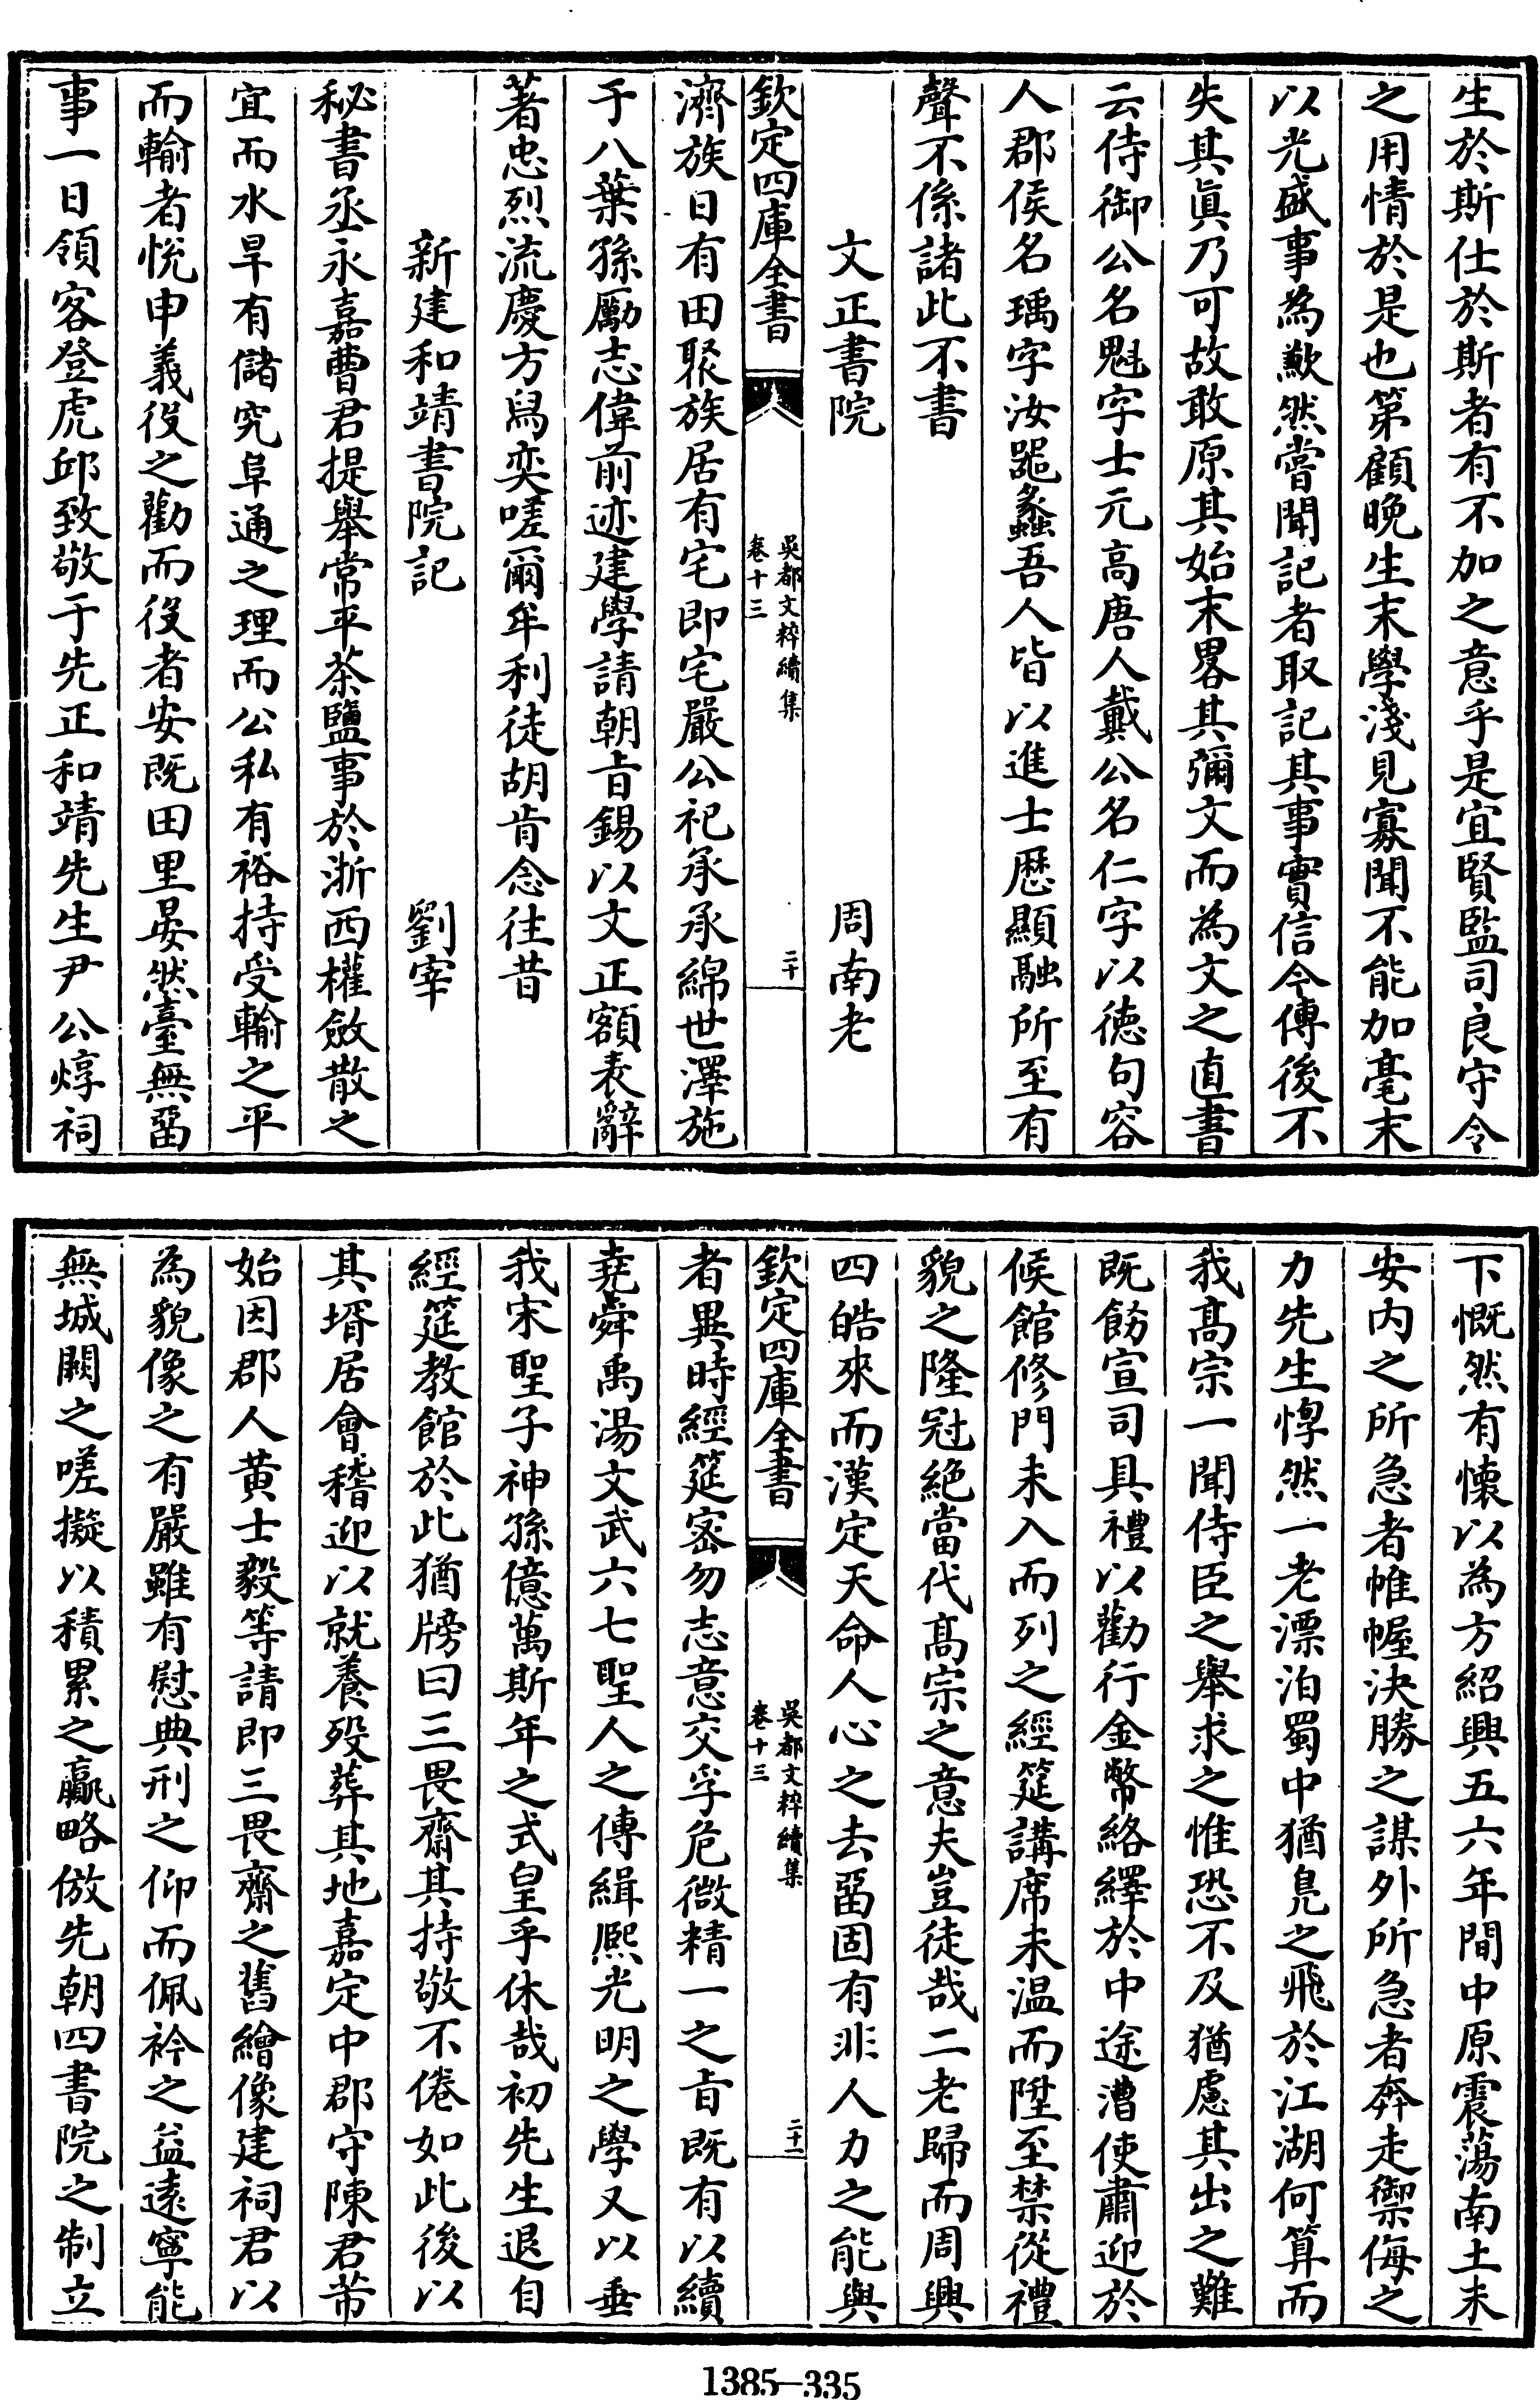 生於斯仕於斯者有不加之意乎是宜賢監司良守令
之用情於是也第顧晚生末學淺見寡聞不能加毫末
以光盛事為歉然嘗聞記者取記其事實信今傳後不
失其眞乃可故敢原其始末畧其彌文而為文之直書
云侍御公名魁字士元高唐人戴公名仁字以徳句容
人郡侯名瑀字汝噐蠡吾人皆以進士歴顯融所至有
聲不係諸此不書
文正書院 周南老
欽定四庫全書 吳都文粹續集 卷十三 二十
濟族日有田聚族居有宅即宅嚴公祀承承綿世澤施
于八葉孫勵志偉前迹建學請朝㫖錫以文正額表辭
著忠烈流慶方舄奕嗟爾牟利徒胡肯念往昔
新建和靖書院記 劉宰
秘書丞永嘉曹君提舉常平茶鹽事於浙西權斂散之
宜而水旱有儲究阜通之理而公私有裕持受輸之平
而輸者悅申義役之勸而役者安既田里晏然臺無畱
事一日領客登虎邱致敬于先正和靖先生尹公焞祠
下慨然有懐以為方紹興五六年間中原震蕩南土未
安内之所急者帷幄決勝之謀外所急者奔走禦侮之
力先生惸然一老漂泊蜀中猶凫之飛於江湖何算而
我髙宗一聞侍臣之舉求之惟恐不及猶慮其出之難
既飭宣司具禮以勸行金幣絡繹於中途漕使肅迎於
候館修門未入而列之經筵講席未温而陞至禁從禮
貌之隆冠絶當代髙宗之意夫豈徒哉二老歸而周興
四皓來而漢定天命人心之去畱固有非人力之能與
欽定四庫全書 吳都文粹續集 卷十三 二十一
者異時經筵宻勿志意交孚危微精一之㫖既有以續
堯舜禹湯文武六七聖人之傳緝熈光明之學又以垂
我宋聖子神孫億萬斯年之式皇乎休哉初先生退自
經筵教館於此猶牓曰三畏齋其持敬不倦如此後以
其壻居會稽迎以就養殁葬其地嘉定中郡守陳君芾
始因郡人黄士毅等請即三畏齋之舊繪像建祠君以
為貌像之有嚴雖有慰典刑之仰而佩衿之益逺寧能
無城闕之嗟擬以積累之贏略倣先朝四書院之制立
1385—335